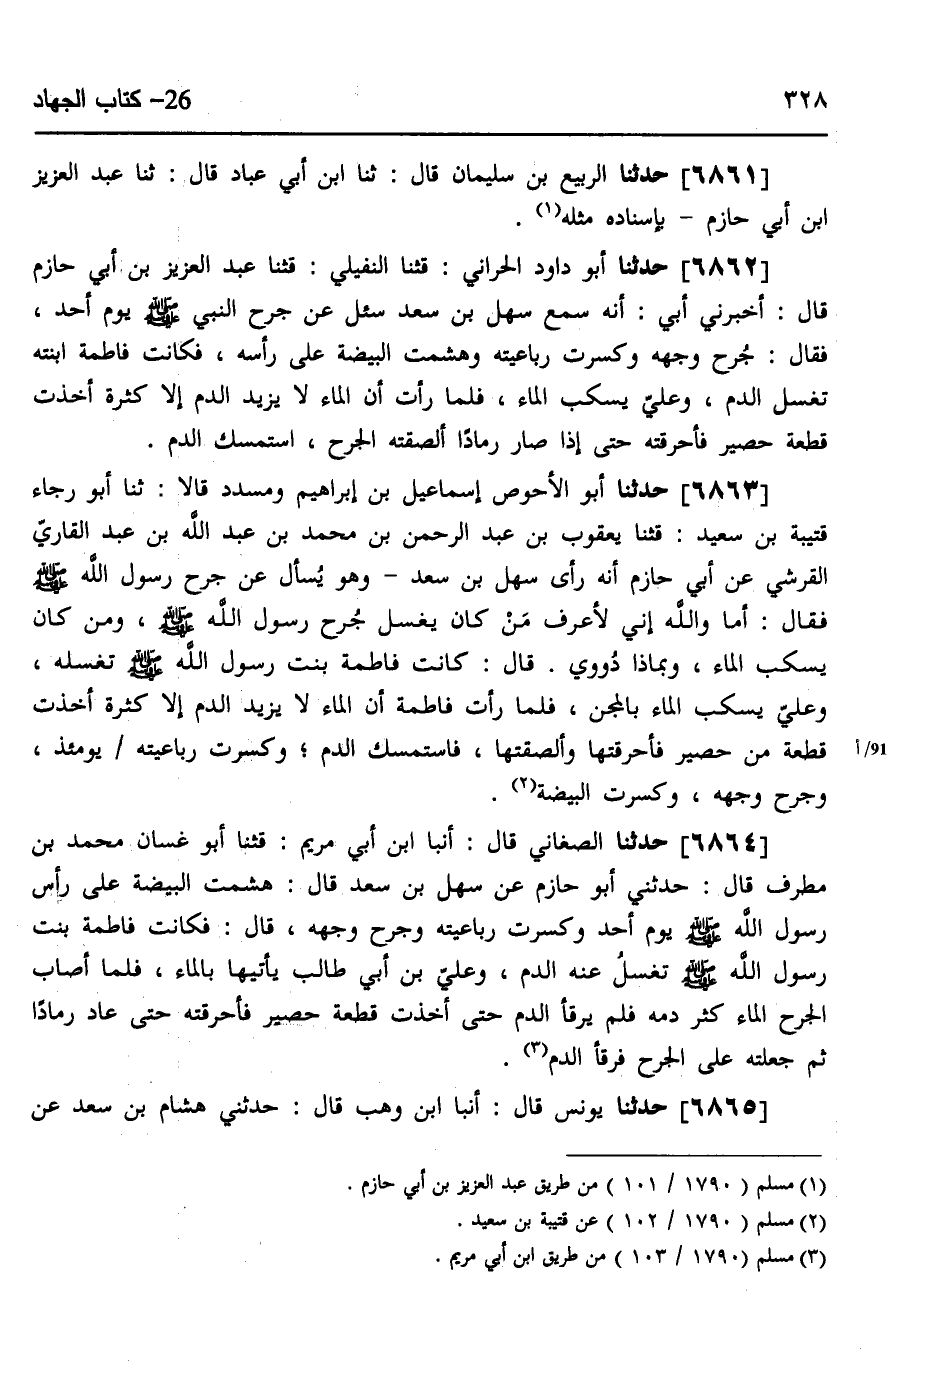 ٣٢٨
26- كتاب الجهاد
[٦٨٦١] حدثنا الربيع بن سليمان قال : ثنا ابن أبي عباد قال : ثنا عبد العزيز
ابن أبي حازم - بإسناده مثله(١) .
[٦٨٦٢] حدثنا أبو داود الحراني : قثنا النفيلي : قثنا عبد العزيز بن أبي حازم
قال : أخبرني أبي : أنه سمع سهل بن سعد سئل عن جرح النبي ﷺ يوم أحد ،
فقال : جُرح وجهه وكسرت رباعيته وهشمت البيضة على رأسه ، فكانت فاطمة ابنته
تغسل الدم ، وعليّ يسكب الماء ، فلما رأت أن الماء لا يزيد الدم إلا كثرة أخذت
قطعة حصير فأحرقته حتى إذا صار رمادًا ألصقته الجرح ، استمسك الدم .
[٦٨٦٣] حدثنا أبو الأحوص إسماعيل بن إبراهيم ومسدد قالا : ثنا أبو رجاء
قتيبة بن سعيد : قثنا يعقوب بن عبد الرحمن بن محمد بن عبد اللَّه بن عبد القاريّ
القرشي عن أبي حازم أنه رأى سهل بن سعد - وهو يُسأل عن جرح رسول اللَّه ﷺ
فقال : أما واللَّه إني لأعرف مَنْ كان يغسل جُرح رسول اللَّه ﷺ ، ومن كان
يسكب الماء ، وبماذا دُووي . قال : كانت فاطمة بنت رسول اللَّه ﷺ تغسله ،
وعليّ يسكب الماء بالمجن ، فلما رأت فاطمة أن الماء لا يزيد الدم إلا كثرة أخذت
قطعة من حصير فأحرقتها وألصقتها ، فاستمسك الدم ؛ وكسرت رباعيته / يومئذ ،
91/أ
وجرح وجهه ، وكسرت البيضة(٢) .
[٦٨٦٤] حدثنا الصغاني قال : أنبا ابن أبي مريم : قثنا أبو غسان محمد بن
مطرف قال : حدثني أبو حازم عن سهل بن سعد قال : هشمت البيضة على رأس
رسول اللَّه ﷺ يوم أحد وكسرت رباعيته وجرح وجهه ، قال : فكانت فاطمة بنت
رسول اللَّه ﷺ تغسلُ عنه الدم ، وعليّ بن أبي طالب يأتيها بالماء ، فلما أصاب
الجرح الماء كثر دمه فلم يرقأ الدم حتى أخذت قطعة حصير فأحرقته حتى عاد رمادًا
ثم جعلته على الجرح فرقأ الدم(٣) .
[٦٨٦٥] حدثنا يونس قال : أنبا ابن وهب قال : حدثني هشام بن سعد عن
(١) مسلم ( ١٧٩٠ / ١٠١ ) من طريق عبد العزيز بن أبي حازم .
(٢) مسلم ( ١٧٩٠ / ١٠٢ ) عن قتيبة بن سعيد .
(٣) مسلم (١٧٩٠ / ١٠٣ ) من طريق ابن أبي مريم .